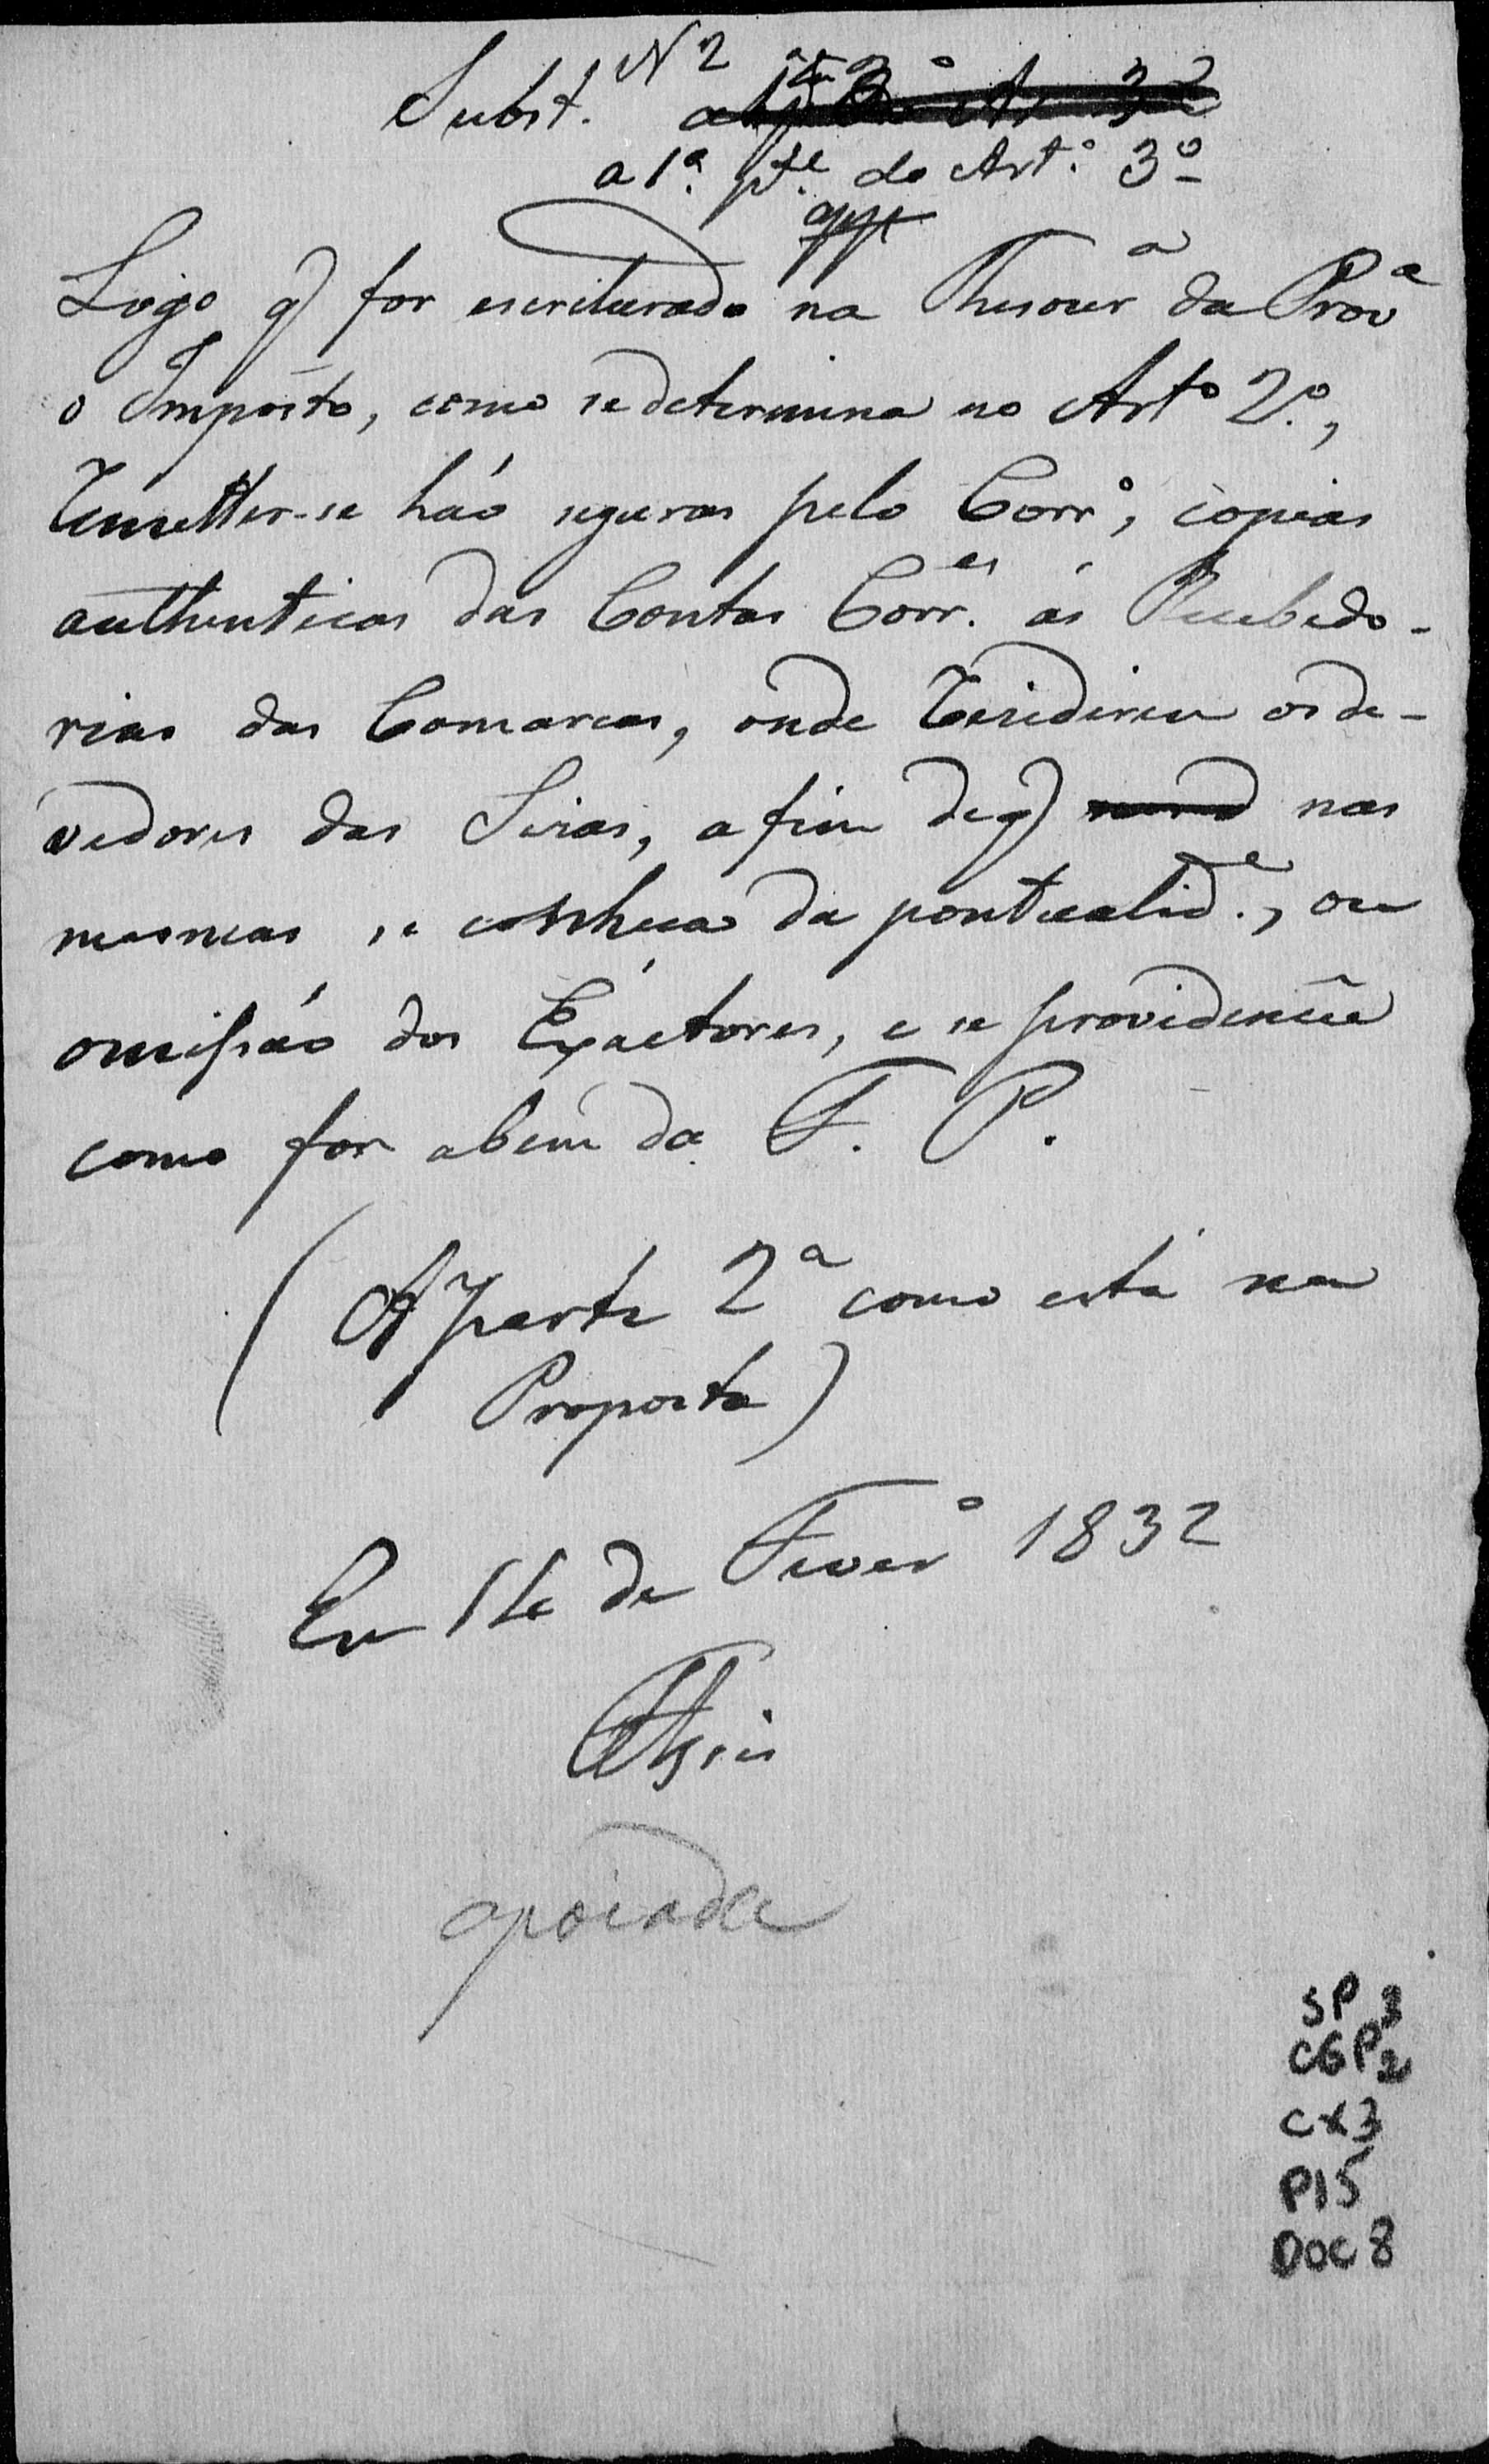 N 2
Subst.
a 1.ª p.te do Art.º 3º
Logo q for escriturado na Thesourª da Provª
o Imposto, como se determina no Artº 2º,
Remetter-se háo seguras pelo Corrº, copias
authenticas das Contas Corr.es ás Recebedo-
rias das Comarcas, onde Residirem os de-
vedores das Sizas, afim de q nas
mesmas se conheça da pontualid.e, ou
omissáo dos Exáctores, e se providencîe
como for abem da F. P.
(A parte 2ª como está na
Proposta)
Em 14 de Feverº 1832
apoiada
SP 3
CGP2
CX3
P15
DOC 8